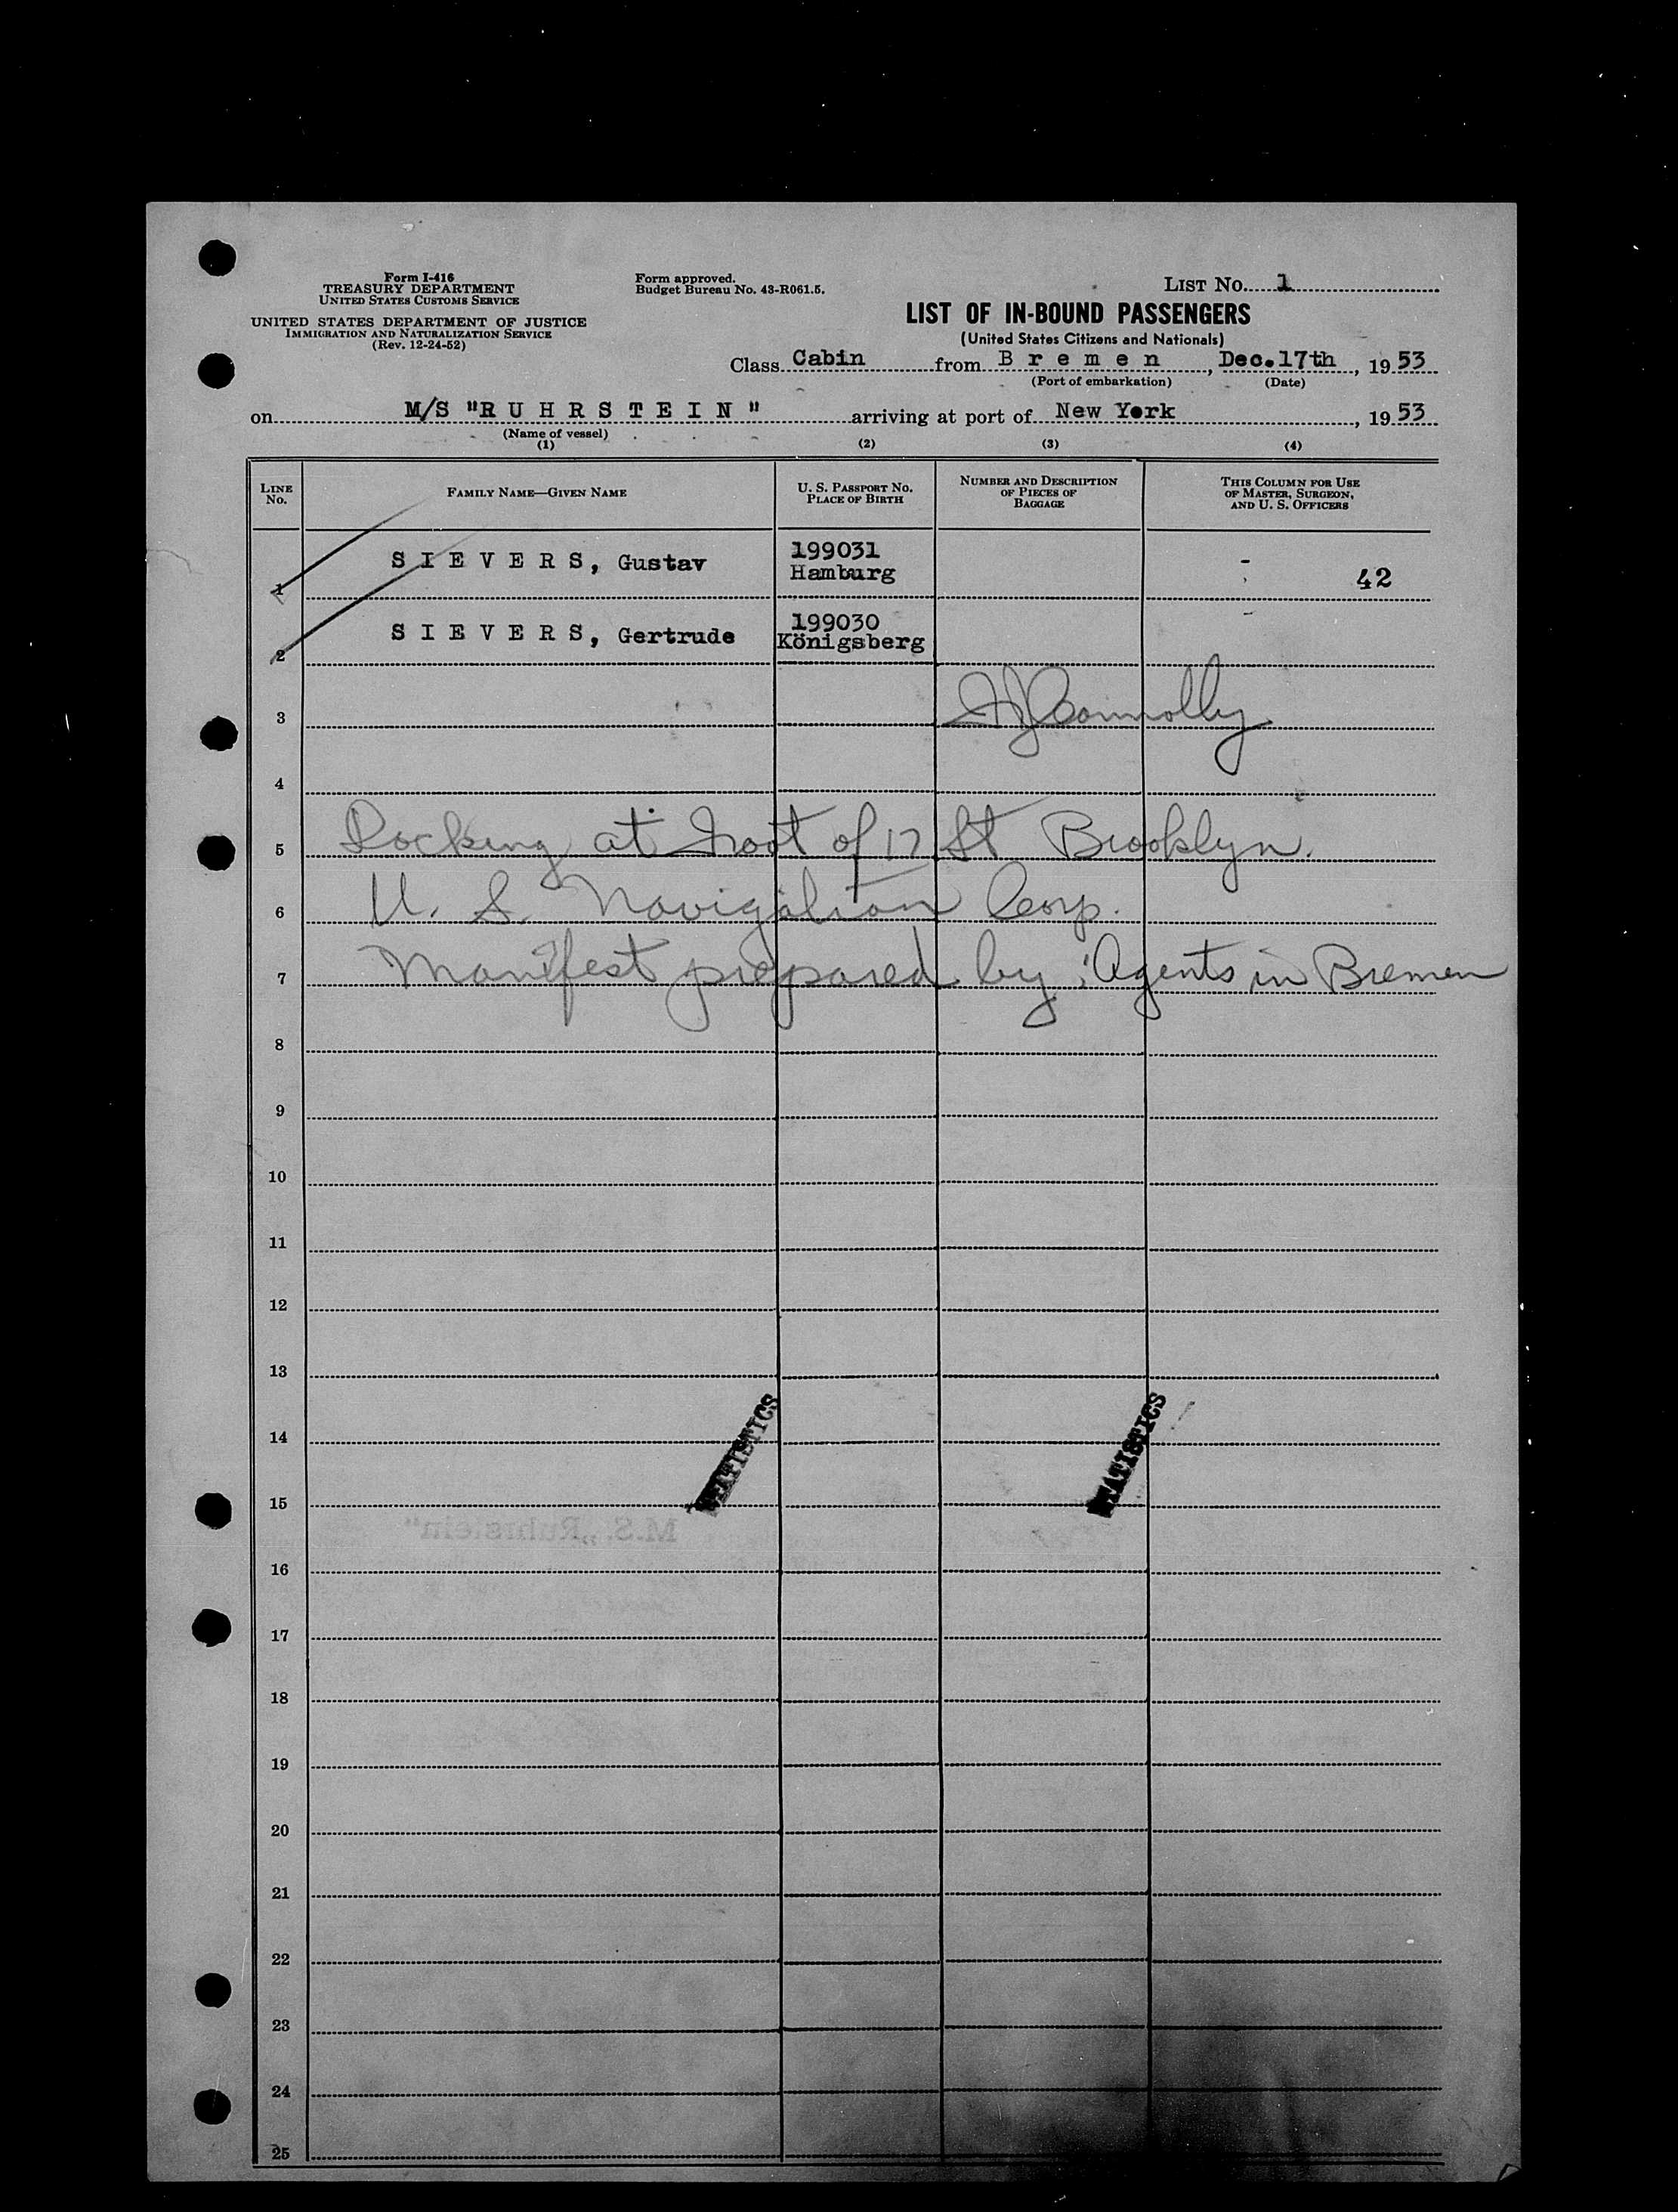 Form I-416
TREASURY DEPARTMENT
UNITED STATES CUSTOMS SERVICE
UNITED STATES DEPARTMENT OF JUSTICE
IMMIGRATION AND NATURALIZATION SERVICE
(Rev. 12-24-52)
Form approved.
Budget Bureau No. 43-R061.5.
LIST No. 1
LIST OF IN-BOUND PASSENGERS
(United States Citizens and Nationals)
Class Cabin from B r e m e n , Dec.17th , 19 53
(Port of embarkation) (Date)
on M/S "R U H R S T E I N " arriving at port of New York , 19 53
(Name of vessel)
(1) (2) (3) (4)
LINE No. FAMILY NAME—GIVEN NAME U. S. PASSPORT No. PLACE OF BIRTH NUMBER AND DESCRIPTION OF PIECES OF BAGGAGE THIS COLUMN FOR USE OF MASTER, SURGEON, AND U. S. OFFICERS
1 S I E V E R S, Gustav 199031 Hamburg - 42
2 S I E V E R S, Gertrude 199030 Königsberg
3 Connolly
4
5 Docking at Foot of 17 St Brooklyn.
6 U. S. Navigation Corp.
7 Manifest prepared by : Agents in Bremen
8
9
10
11
12
13
14
STATISTICS STATISTICS
15
M.S. „Ruhrstein“
16
17
18
19
20
21
22
23
24
25